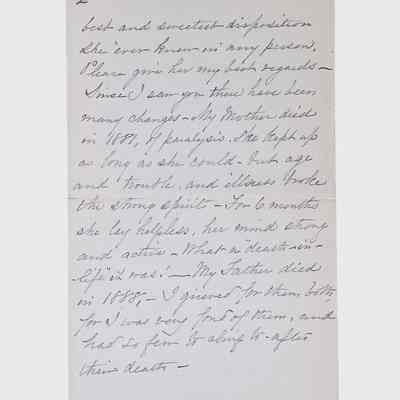 best and sweetest disposition
she "ever knew in" any person.
Please give her my best regards –
Since I saw you there have been
many changes – My Mother died
in 1887, of paralysis. She kept up
as long as she could – but age
and trouble, and illness broke
the strong spirit – For 6 months
she lay helpless, her mind strong
and active – What a "death-in-
life" it was! – My Father died
in 1888, – I grieved for them both,
for I was very fond of them, and
had so few to cling to – after
their death –